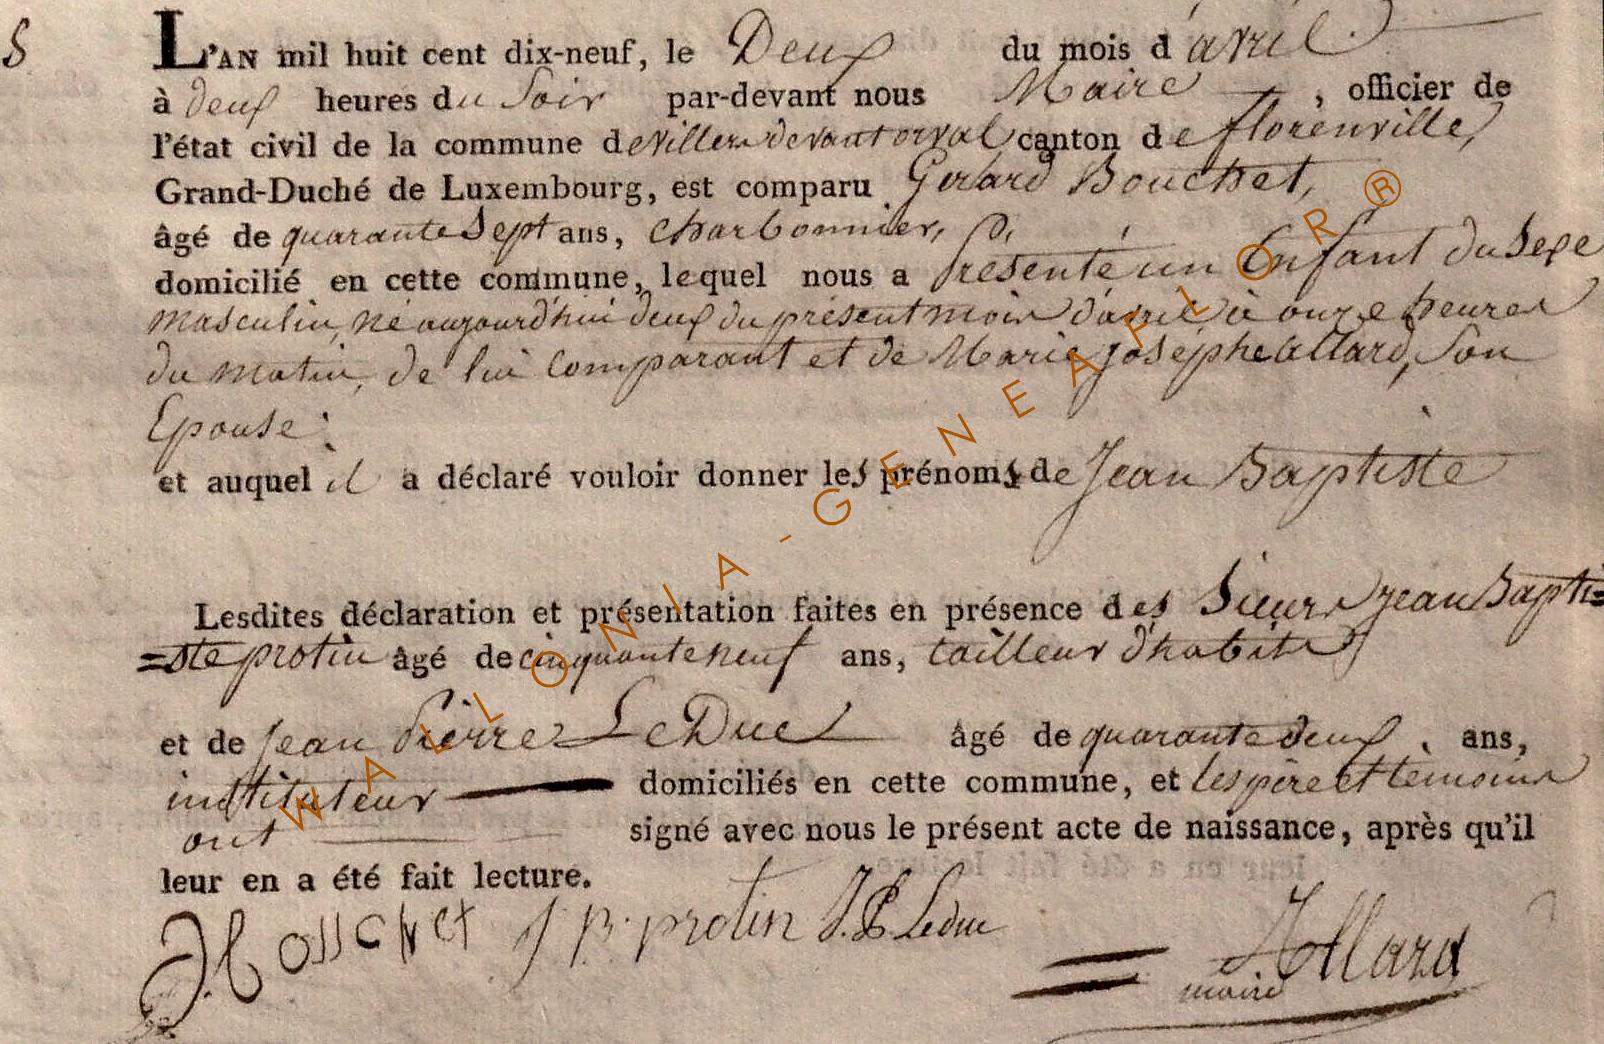 5
L'AN mil huit cent dix-neuf, le Deux du mois d'avril
à deux heures du Soir par-devant nous Maire, officier de
l'état civil de la commune de Villers devant orval canton de florenville,
Grand-Duché de Luxembourg, est comparu Gerard Bouchet,
âgé de quarante Sept ans, charbonnier,
domicilié en cette commune, lequel nous a Présenté un Enfant du Sexe
masculin, né aujourd'hui deux du présent mois d'avril à onze heures
du matin, de lui Comparant et de Marie josephe allard, Son
Epouse.
et auquel il a déclaré vouloir donner les prénoms de Jean Baptiste
Lesdites déclaration et présentation faites en présence des Sieurs jean Bapti=
=ste protin âgé de cinquante neuf ans, tailleur d'habits
et de jean Pierre LeDuc âgé de quarante deux ans,
instituteur domiciliés en cette commune, et les père et temoins
ont signé avec nous le présent acte de naissance, après qu'il
leur en a été fait lecture.
Bouchet J B protin J.P. Leduc Allard
maire
WALLONIA-GENEAFLOR®